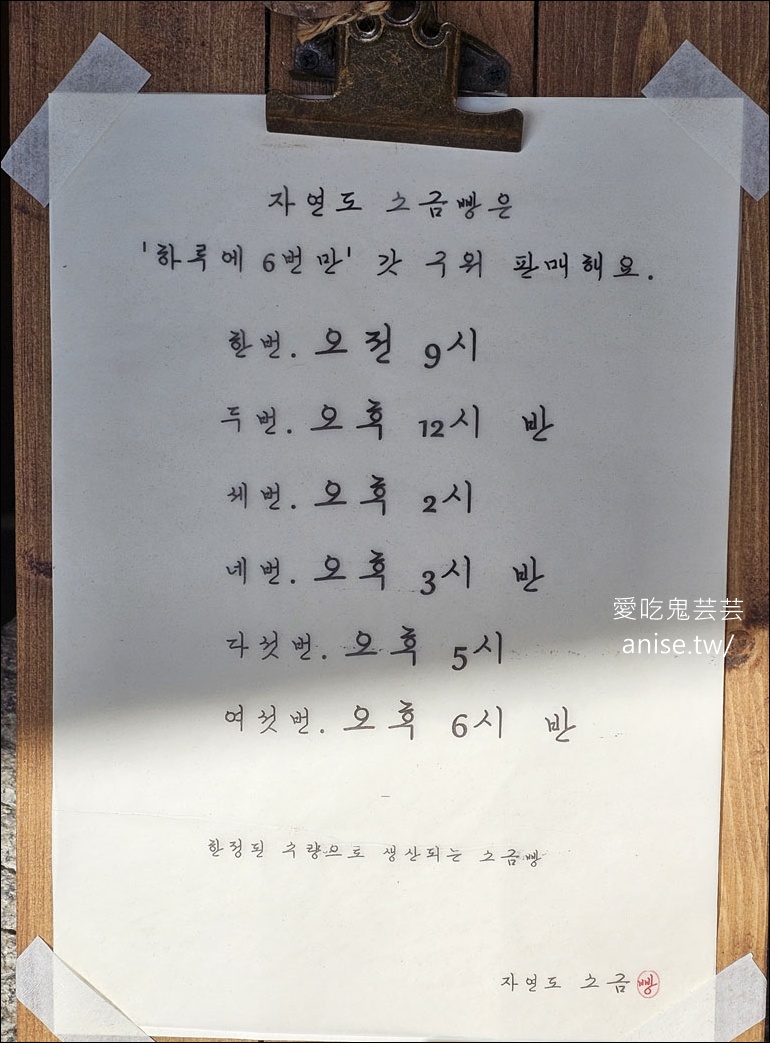 자연도 소금빵은
'하루에 6번만' 갓 구워 판매해요.
한번. 오전 9시
두번. 오후 12시 반
세번. 오후 2시
네번. 오후 3시 반
愛吃鬼芸芸
anise.tw/
다섯번. 오후 5시
여섯번. 오후 6시 반
–
한정된 수량으로 생산되는 소금빵
자연도 소금빵